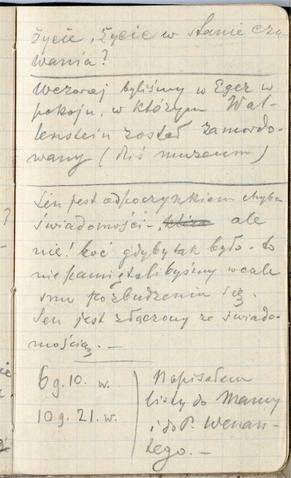 Życie, życie w stanie czu
wania?
Wczoraj byliśmy w Eger w
pokoju, w którym Wal-
lenstein został zamordo-
wany (dziś muzeum)
Sen jest odpoczynkiem chyba
świadomości –, ale
nie! boć gdyby tak było – to
nie pamiętalibyśmy wcale
snu po zbudzeniu się.
Sen jest złączony ze świado-
mością. –
?
6 g. 10. w.
10 g. 21. w.
Napisałem
listy do Mamy
i do P. Wenan-
tego. –